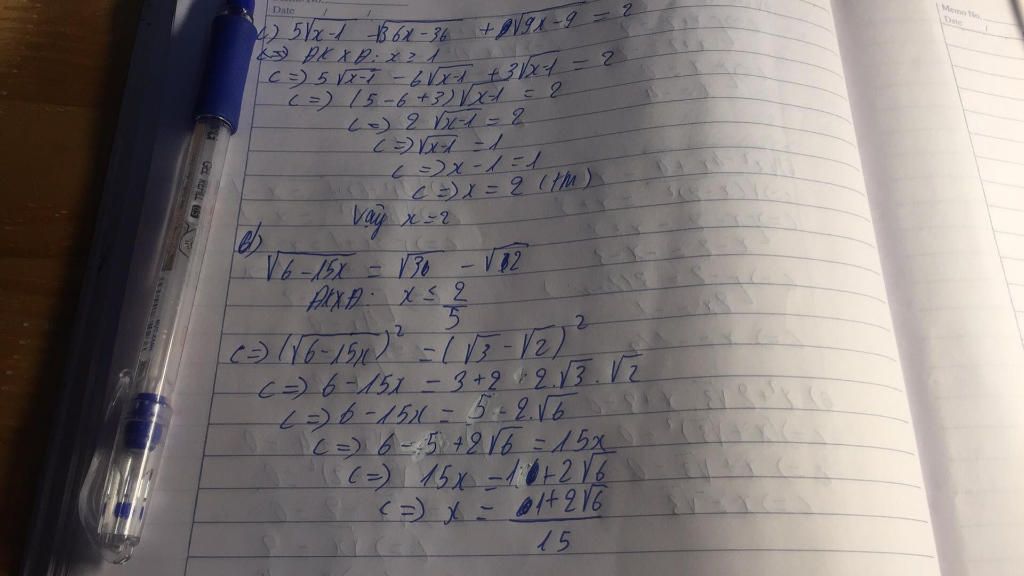 Date / /
c) 5√x-1 - √36x-36 + √9x-9 = 2
<=> ĐKXĐ: x ≥ 1
<=> 5√x-1 - 6√x-1 + 3√x-1 = 2
<=> (5-6+3)√x-1 = 2
<=> 2√x-1 = 2
<=> √x-1 = 1
<=> x-1=1
<=> x = 2 (tm)
Vậy x=2
d)
√6-15x = √3 - √2
ĐKXĐ: x ≤ 2/5
<=> (√6-15x)² = (√3 - √2)²
<=> 6-15x = 3+2 - 2.√3.√2
<=> 6-15x = 5-2.√6
<=> 6-5+2√6 = 15x
<=> 15x = 1+2√6
<=> x = 1+2√6/15
Memo No.
Date /